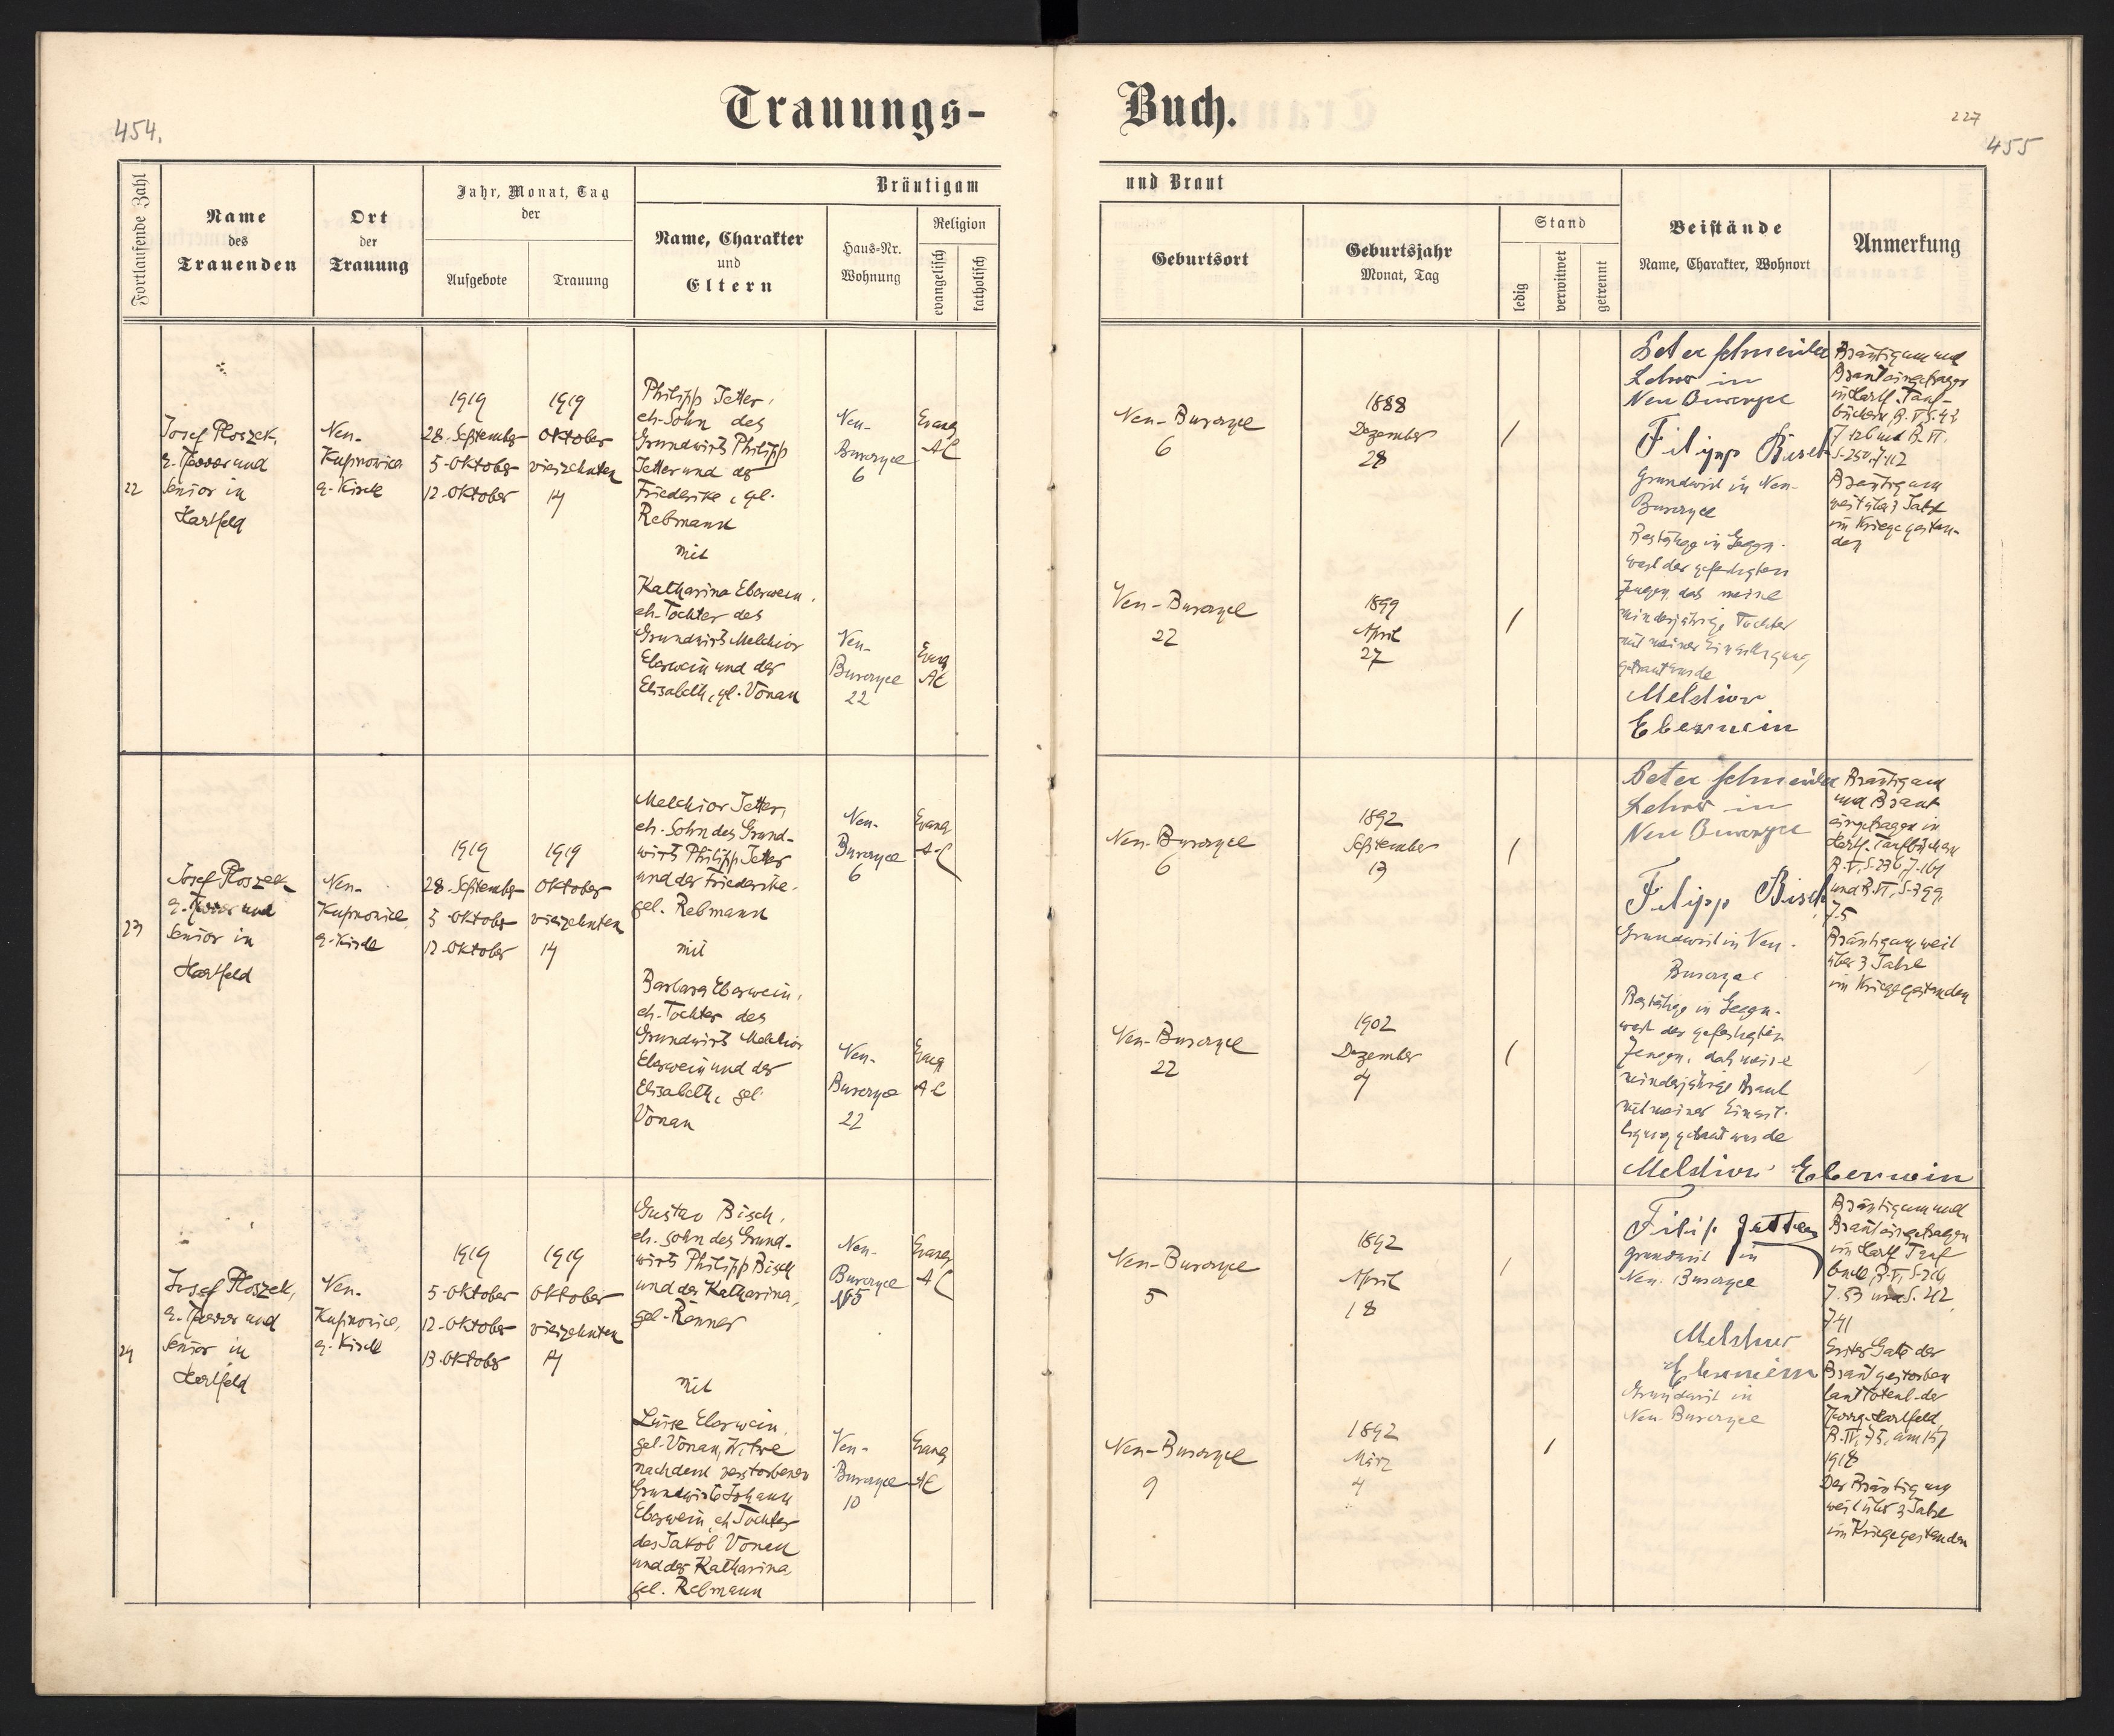 454.
Trauungs-
Buch.
227
455
Fortlaufende Zahl
Name
des
Trauenden
Ort
der
Trauung
Jahr, Monat, Tag
der
Aufgebote
Trauung
Bräutigam
Name, Charakter
und
Eltern
Haus-Nr.
Wohnung
Religion
evangelisch
katholisch
und Braut
Geburtsort
Geburtsjahr
Monat, Tag
Stand
ledig
verwitwet
getrennt
Beistände
Name, Charakter, Wohnort
Anmerkung
22
Josef Ploszek,
e. Pfarrer und
Senior in
Hartfeld
Neu-
Kupnowice
e. Kirche
1919
28. September
5. Oktober
12. Oktober
1919
Oktober
vierzehnten
14
Philipp Jetter,
eh. Sohn des
Grundwirts Philipp
Jetter und der
Friederike, gb.
Rebmann
mit
Katharina Eberwein,
eh. Tochter des
Grundwirts Melchior
Eberwein und der
Elisabeth, gb. Vonau
Neu-
Burczyce
6
Neu-
Burczyce
22
Evang
AC
Evang
AC
Neu-Burczyce
6
Neu-Burczyce
22
1888
Dezember
28
1899
April
27
/
/
Peter Schneider
Lehrer in
Neu Burczyce
Filipp Bisch
Grundwirt in Neu-
Burczyce
Bestätige in Gegen-
wart der gefertigten
Zeugen, das meine
minderjährige Tochter
mit meiner Einwilligung
getraut wurde
Melchior
Eberwein
Bräutigam und
Braut eingetragen
in Hartf. Tauf-
büchern B. V S. 42
Z 126 und B. VI.
S. 250, Z. 112
Bräutigam
weit über 3 Jahre
im Kriege gestan-
den
23
Josef Ploszek,
e. Pfarrer und
Senior in
Hartfeld
Neu-
Kupnowice,
e. Kirche
1919
28. September
5 Oktober
12. Oktober
1919
Oktober
vierzehnten
14
Melchior Jetter,
eh. Sohn des Grund-
wirts Philipp Jetter
und der Friederike.
geb. Rebmann
mit
Barbara Eberwein,
eh. Tochter des
Grundwirts Melchior
Eberwein und der
Elisabeth, geb
Vonau
Neu-
Burczyce
6
Neu-
Burczyce
22
Evang
AC
Evang
AC
Neu-Burczyce
6
Neu-Burczyce
22
1892
September
13
1902
Dezember
4
/
/
Peter Schneider
Lehrer in
Neu Burczyce
Filipp Bisch
Grundwirt in Neu-
Burczyce
Bestätige in Gegen-
wart der gefertigten
Zeugen, daß meine
minderjährige Braut
mit meiner Einwil-
ligung getraut wurde
Melchior Eberwein
Bräutigam
und Braut
eingetragen in
Hartf. Taufbüchern
B. V, S. 236, Z. 161
und B. VI, S. 399,
Z. 5
Bräutigam weil
über 3 Jahre
im Kriege gestanden
24
Josef Ploszek,
e. Pfarrer und
Senior in
Hartfeld
Neu-
Kupnowice,
e. Kirche
1919
5. Oktober
12. Oktober
13. Oktober
1919
Oktober
vierzehnten
14
Gustav Bisch,
eh. Sohn des Grund-
wirts Philipp Bisch
und der Katharina,
geb. Renner
mit
Luise Eberwein,
geb. Vonau, Witwe
nach dem verstorbenen
Grundwirts Johann
Eberwein, eh. Tochter
des Jakob Vonau
und der Katharina,
geb. Rebmann
Neu-
Burczyce
5
Neu-
Burczyce
10
Evang
AC
Evang
AC
Neu-Burczyce
5
Neu-Burczyce
9
1892
April
18
1892
März
4
/
/
Filip Jetter
Grundwirt in
Neu Burczyce
Melchior
Eberwein
Grundwirt in
Neu-Burczyce
Bräutigam und
Braut eingetragen
im Hartf. Tauf
buch B. V, S. 216,
Z. 53 und S. 212
Z 41
Erster Gatte der
Braut gestorben
laut Totenb. der
Pfarrg. Hartfeld,
1918
Der Bräutigam
weil über 3 Jahre
im Kriege gestanden